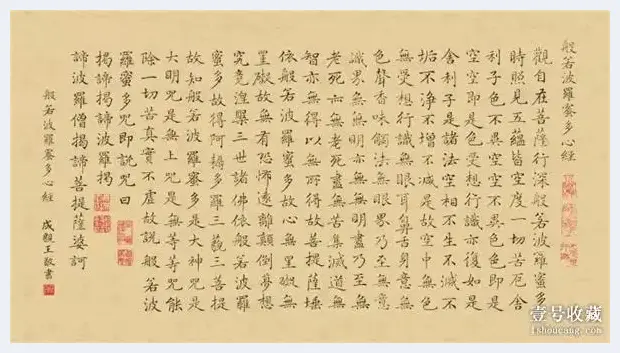 般若波羅蜜多心經
觀自在菩薩行深般若波羅蜜多
時照見五蘊皆空度一切苦厄舍
利子色不異空空不異色色即是
空空即是色受想行識亦復如是
舍利子是諸法空相不生不滅不
垢不淨不增不減是故空中無色
無受想行識無眼耳鼻舌身意無
色聲香味觸法無眼界乃至無意
識界無無明亦無無明盡乃至無
老死亦無老死盡無苦集滅道無
智亦無得以無所得故菩提薩埵
依般若波羅蜜多故心無罣礙無
罣礙故無有恐怖遠離顛倒夢想
究竟涅槃三世諸佛依般若波羅
蜜多故得阿耨多羅三藐三菩提
故知般若波羅蜜多是大神咒是
大明咒是無上咒是無等等咒能
除一切苦真實不虛故說般若波
羅蜜多咒即說咒曰
揭諦揭諦波羅揭
諦波羅僧揭諦菩提薩婆訶
般若波羅蜜多心經 成親王敬書
壹号收藏
1shoucang.com